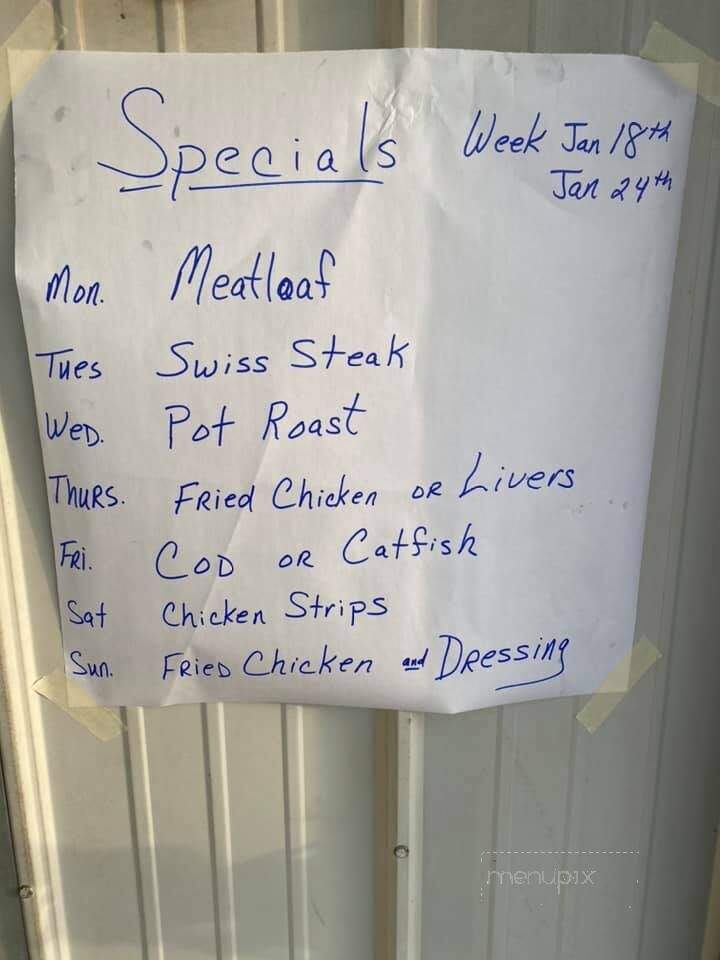 Specials Week Jan 18th
Jan 24th
Mon. Meatloaf
Tues Swiss Steak
WED. Pot Roast
THURS. FRied Chicken OR Livers
FRi. COD OR Catfish
Sat Chicken Strips
Sun. FRiED Chicken and DRessing
menupix